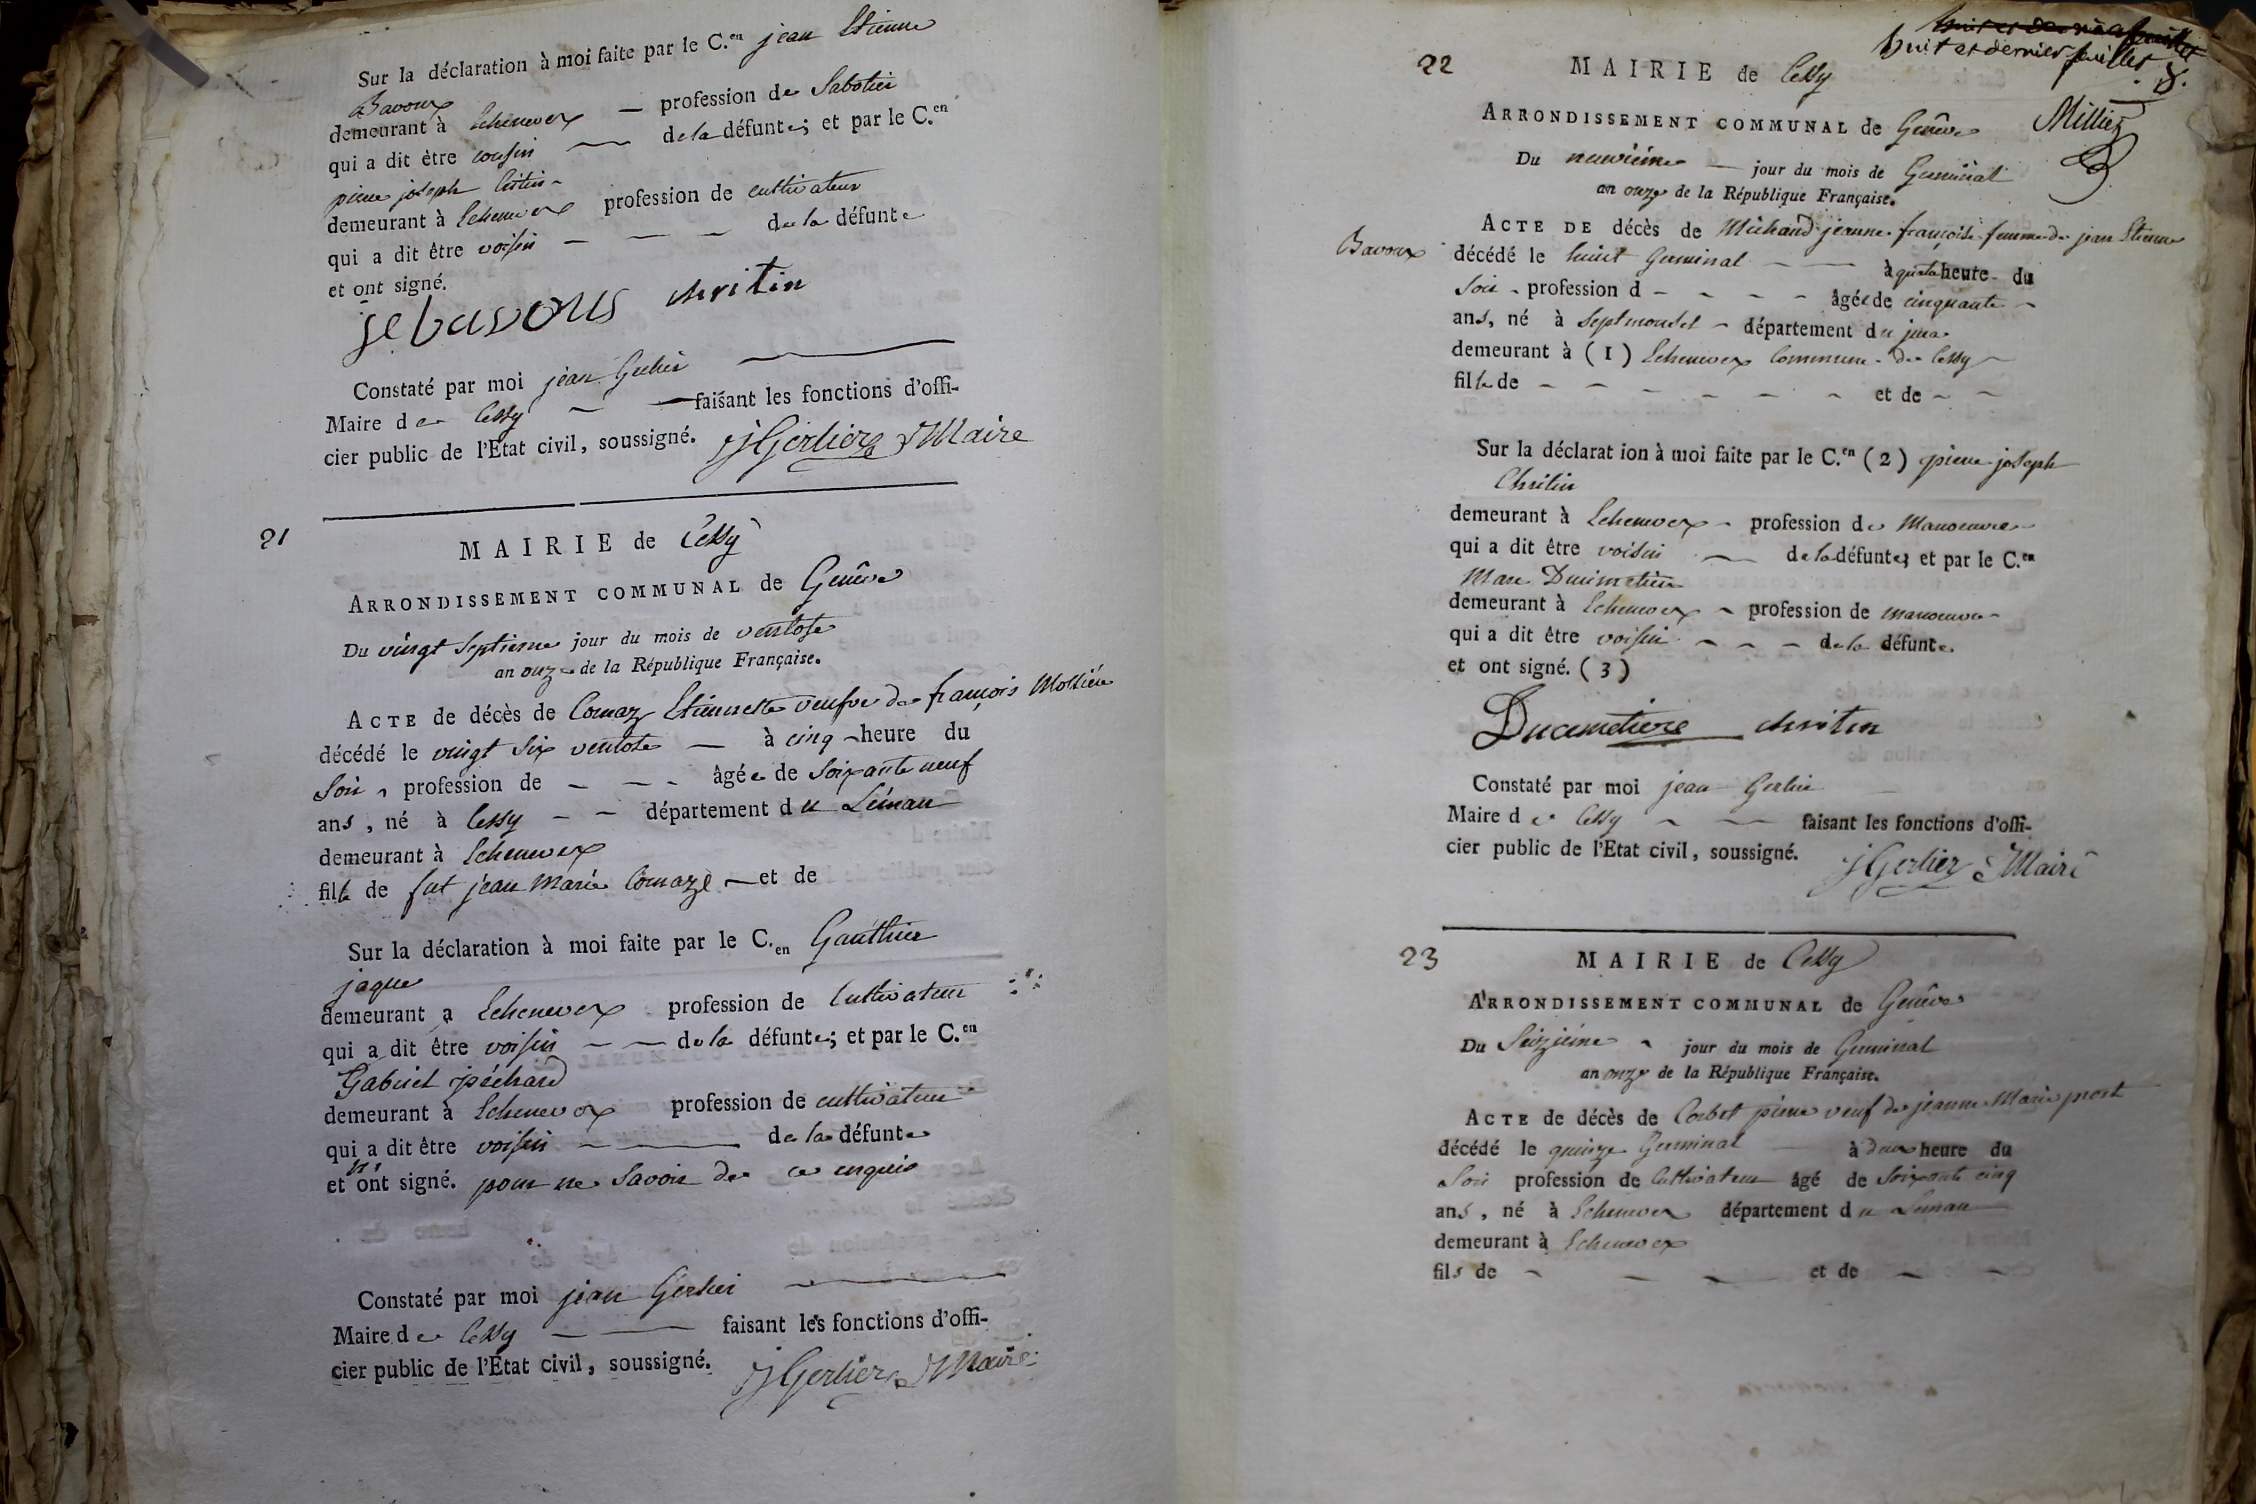 Sur la déclaration à moi faite par le C.en jean Etienne
Bavoux
demeurant à Echenevex — profession de Sabotier
qui a dit être cousin — de la défunte; et par le C.en
pierre joseph
demeurant à Echenevex profession de cultivateur
qui a dit être voisin — — — de la défunte
et ont signé.
je bavous chritin
Constaté par moi jean Gerlier —
Maire de Cessy — — faisant les fonctions d'offi-
cier public de l'Etat civil, soussigné. j Gerlier Maire
21
MAIRIE de Cessy
ARRONDISSEMENT COMMUNAL de Genêve
Du vingt Septieme jour du mois de ventose
an onze de la République Française.
ACTE de décès de Comaz Etiennette veufve de françois Mossiere
décédé le vingt Six ventose — à cinq heure du
Soir, profession de — — - âgée de Soixante neuf
ans, né à Cessy — — département du Léman
demeurant à Echenevex
fille de fut jean Marie Comaz — et de
Sur la déclaration à moi faite par le C.en Gauthier
jaque
demeurant a Echenevex profession de Cultivateur
qui a dit être voisin — — de la défunte; et par le C.en
Gabriel péchard
demeurant à Echenevex profession de cultivateur
qui a dit être voisin — — de la défunte
et n'ont signé. pour ne Savoir de ce enquis
Constaté par moi jean Gerlier —
Maire de Cessy — — faisant les fonctions d'offi-
cier public de l'Etat civil, soussigné. j Gerlier Maire
huit et dernier feuillet
huit et dernier feuillet . 8.
Milliez
22
MAIRIE de Cessy
ARRONDISSEMENT COMMUNAL de Genêve
Du neuvième — jour du mois de Germinal
an onze de la République Française.
ACTE DE décès de Michaud jeanne françoise femme de jean Etienne
Bavoux décédé le huit Germinal — — à quatre heure du
Soir - profession d - - - - âgée de cinquante -
ans, né à Septmoncel - département du jura
demeurant à (1) Echenevex Commune de Cessy -
fille de - - - - - - et de - -
Sur la déclarat ion à moi faite par le C.en (2) pierre joseph
Chritin
demeurant à Echenevex - profession de Manoeuvre
qui a dit être voisin — de la défunte; et par le C.en
Marc Ducimetiere
demeurant à Echenevex - profession de manoeuvre
qui a dit être voisin - - - de la défunte
et ont signé. (3)
Ducimetiere chritin
Constaté par moi jean Gerlier
Maire de Cessy - — faisant les fonctions d'offi-
cier public de l'Etat civil, soussigné. j Gerlier Maire
23
MAIRIE de Cessy
ARRONDISSEMENT COMMUNAL de Genêve
Du Seizième - jour du mois de Germinal
an onze de la République Française.
ACTE de décès de Corbet pierre veuf de jeanne Marie prost
décédé le quinze Germinal — à deux heure du
Soir profession de Cultivateur âgé de Soixante cinq
ans, né à Echenevex département du Léman
demeurant à Echenevex
fils de - - - et de - -